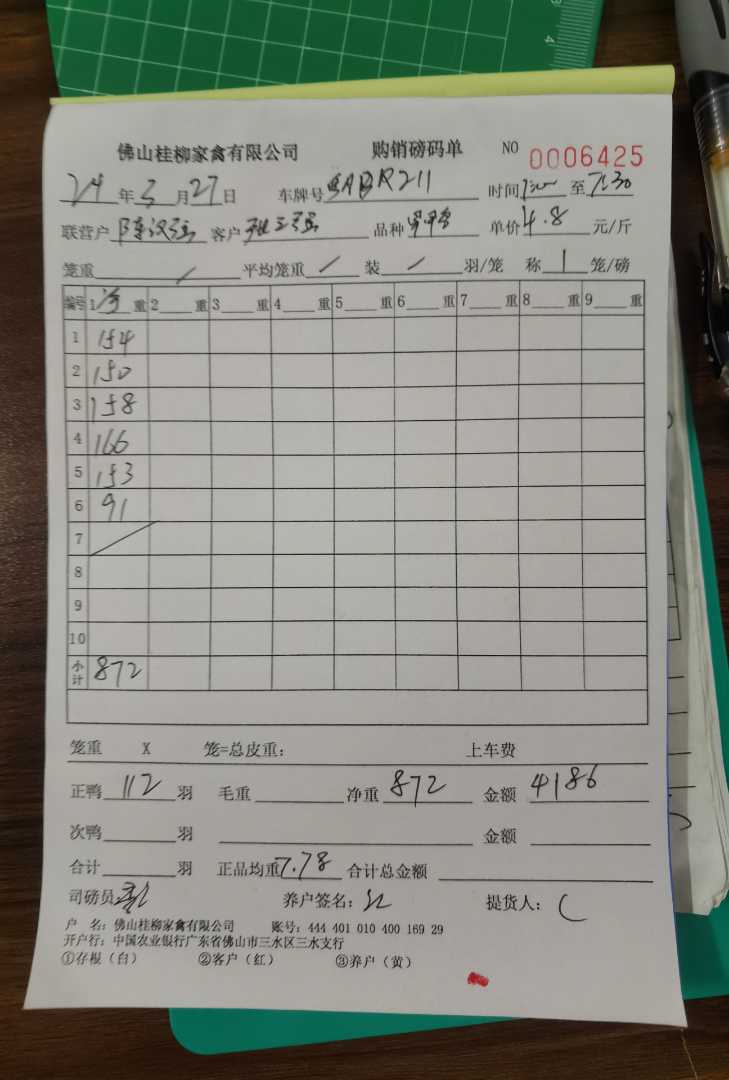 佛山桂柳家禽有限公司 购销磅码单 NO 0006425
24年3月27日 车牌号 ABR211 时间 至7:30
联营户 陈汉强 客户 品种 单价4.8元/斤
笼重 / 平均笼重 / 装 / 羽/笼 称 1 笼/磅
编号 1 重 2 重 3 重 4 重 5 重 6 重 7 重 8 重 9 重
1 154
2 150
3 158
4 166
5 153
6 91
7 /
8
9
10
小计 872
笼重 X 笼=总皮重: 上车费
正鸭 112 羽 毛重 净重 872 金额 4186
次鸭 羽 金额
合计 羽 正品均重 7.78 合计总金额
司磅员 养户签名: 提货人:
户 名: 佛山桂柳家禽有限公司 账号: 444 401 010 400 169 29
开户行: 中国农业银行广东省佛山市三水区三水支行
①存根(白) ②客户(红) ③养户(黄)